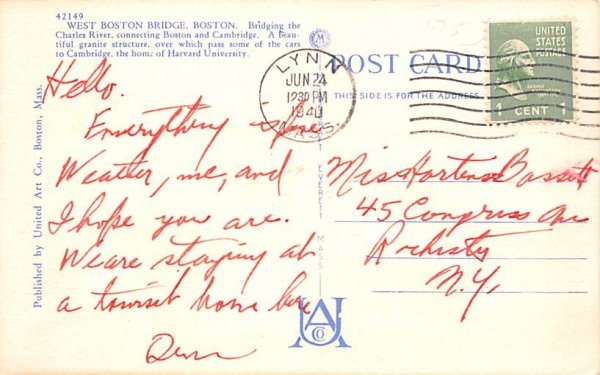 42149
WEST BOSTON BRIDGE, BOSTON. Bridging the
Charles River, connecting Boston and Cambridge. A beau-
tiful granite structure, over which pass some of the cars
to Cambridge, the home of Harvard University.
Published by United Art Co., Boston, Mass.
POST CARD
THIS SIDE IS FOR THE ADDRESS
LYNN
JUN 24
1230 PM
1940
MASS.
UNITED
STATES
POSTAGE
1 CENT 1
EVERETT
MASS
UACO
Hello.
Everything fine
Weather, me, and
I hope you are.
We are staying at
a tourist home here
Miss Hortense Bassett
45 Congress Ave
Rochester
N.Y.